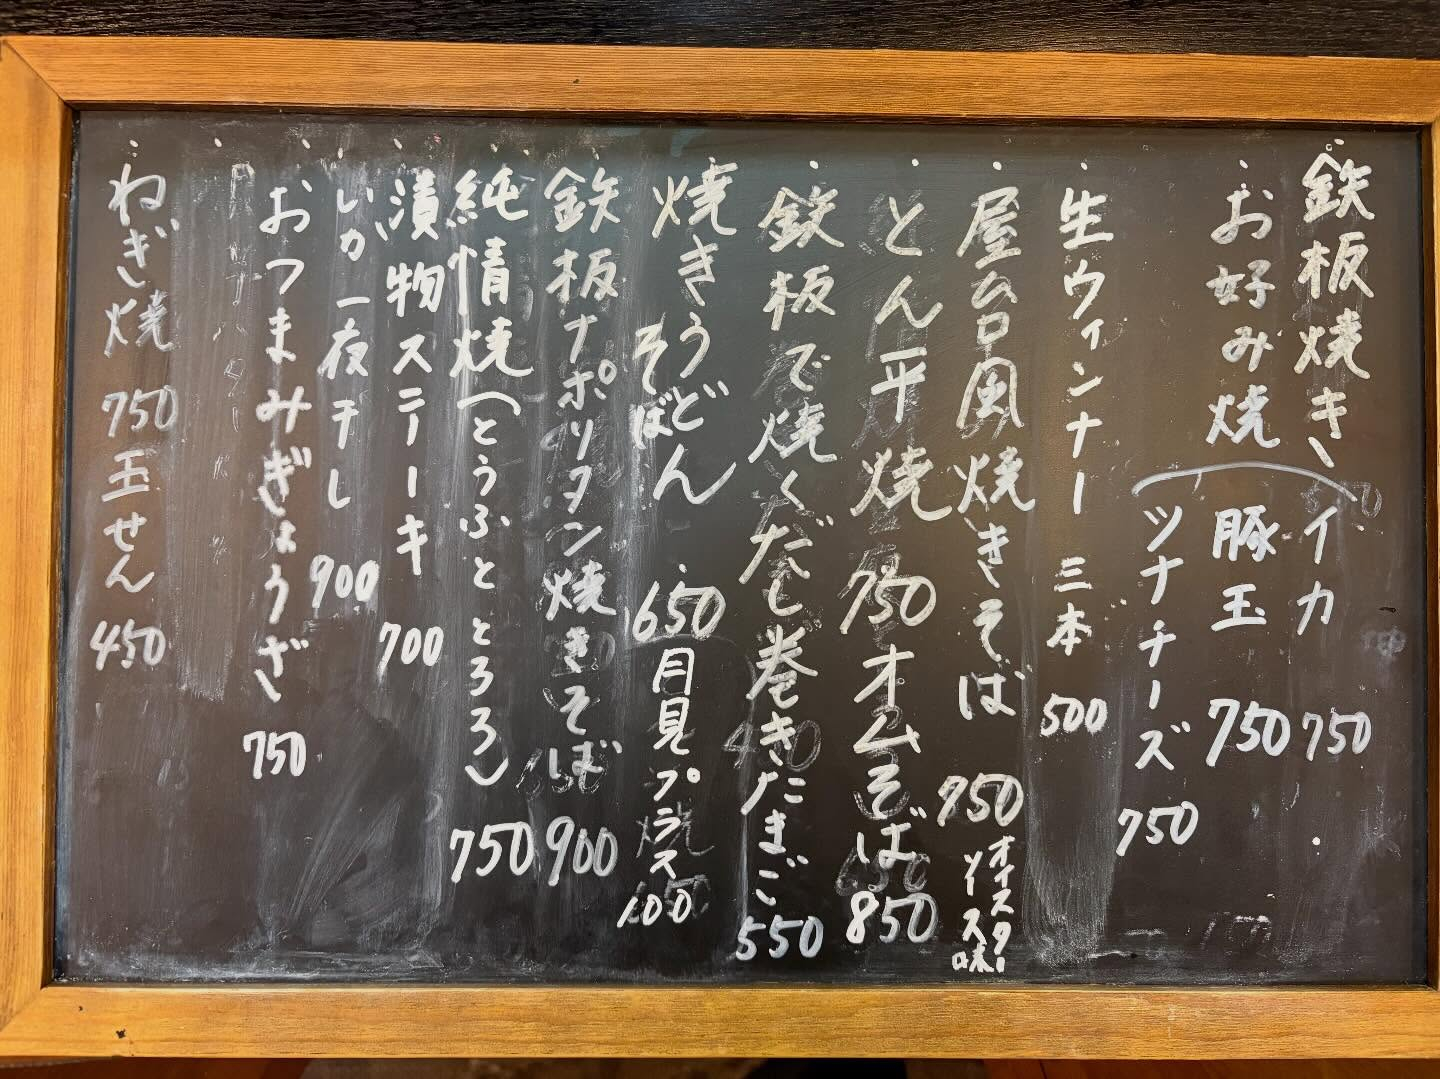 鉄板焼き、イカ 750
お好み焼 豚玉 750
ツナチーズ 750
生ウィンナー 三本 500
屋台風焼きそば 750 オイスターソース味
とん平焼 750 オムそば 850
鉄板で焼くだし巻きたまご 550
焼きうどん そば 650 月見プラス 100
鉄板ナポリタン焼きそば 900
純情焼(とうふととろろ) 750
漬物ステーキ 700
いか一夜干し 900
おつまみぎょうざ 750
ねぎ焼 750 玉せん 450